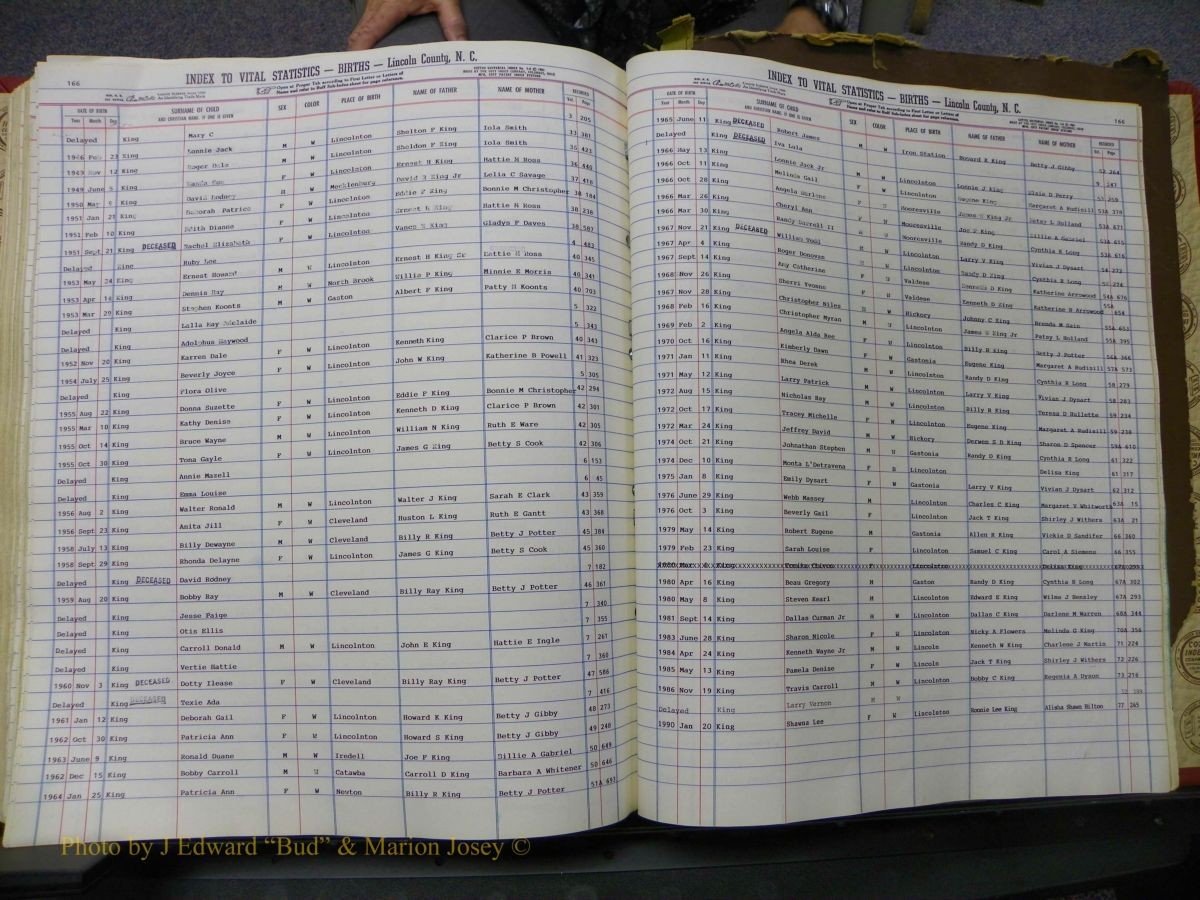 166
INDEX TO VITAL STATISTICS — BIRTHS — Lincoln County, N. C.
Open at Proper Tab according to First Letter or Letters of
Name and refer to Buff Sub-Index sheet for page reference.
DATE OF BIRTH SURNAME OF CHILD SEX COLOR PLACE OF BIRTH NAME OF FATHER NAME OF MOTHER RECORDED
Year Month Day AND CHRISTIAN NAME, IF ONE IS GIVEN Vol. Page
Delayed King Mary C 3 205
1946 Feb 23 King Lonnie Jack M W Lincolnton Shelton F King Iola Smith 33 381
1943 Nov 12 King Roger Dale M W Lincolnton Sheldon F King Iola Smith 35 423
1949 June 5 King F W Lincolnton Ernest H King Hattie N Ross 36 440
1950 May King David Rodney W Mecklenburg David R King Jr Lelia C Savage 37 418
1951 Jan 21 King Deborah Patrice F W Lincolnton Eddie F King Bonnie M Christopher 38 184
1951 Feb 10 King Edith Dianne F W Lincolnton Ernest H King Hattie N Ross 38 238
1951 Sept 21 King DECEASED Rachel Elizabeth F W Lincolnton Vance King Gladys F Daves 38 587
Delayed King Ruby Lee 4 483
1953 May 24 King Ernest Howard M W Lincolnton Ernest H King Sr Hattie N Ross 40 345
1953 Apr 14 King Dennis Ray M W North Brook Willis P King Minnie E Morris 40 341
1953 Mar 29 King Stephen Koonts M W Gaston Albert F King Patty H Koonts 40 703
Delayed King Lalla Ray Adelaide 5 322
Delayed King Adolphus Haywood 5 343
1952 Nov 20 King Karren Dale F W Lincolnton Kenneth King Clarice P Brown 40 343
1954 July 25 King Beverly Joyce F W Lincolnton John W King Katherine B Powell 41 323
Delayed King Flora Olive 5 305
1955 Aug 22 King Donna Suzette F W Lincolnton Eddie F King Bonnie M Christopher 42 294
1955 Mar 10 King Kathy Denise F W Lincolnton Kenneth D King Clarice P Brown 42 301
1955 Oct 14 King Bruce Wayne M W Lincolnton William N King Ruth E Ware 42 305
1955 Oct 30 King Tona Gayle F W Lincolnton James G King Betty S Cook 42 306
Delayed King Annie Mazell 6 153
Delayed King Emma Louise 6 45
1956 Aug 2 King Walter Ronald M W Lincolnton Walter J King Sarah E Clark 43 359
1956 Sept 23 King Anita Jill F W Cleveland Huston L King Ruth E Gantt 43 368
1958 July 13 King Billy Dewayne M W Cleveland Billy R King Betty J Potter 45 384
1958 Sept 29 King Rhonda Delayne F W Lincolnton James G King Betty S Cook 45 360
Delayed King DECEASED David Rodney 7 182
1959 Aug 20 King Bobby Ray M W Cleveland Billy Ray King Betty J Potter 46 361
Delayed King Jesse Paige 7 340
Delayed King Otis Ellis 7 355
Delayed King Carroll Donald M W Lincolnton John E King Hattie E Ingle 7 261
Delayed King Vertie Hattie 7 360
1960 Nov 3 King DECEASED Dotty Ilease F W Cleveland Billy Ray King Betty J Potter 47 586
Delayed King DECEASED Texie Ada 7 416
1961 Jan 12 King Deborah Gail F W Lincolnton Howard K King Betty J Gibby 48 273
1962 Oct 30 King Patricia Ann F W Lincolnton Howard S King Betty J Gibby 49 248
1963 June 9 King Ronald Duane M W Iredell Joe F King Billie A Gabriel 50 649
1962 Dec 15 King Bobby Carroll M W Catawba Carroll D King Barbara A Whitener 50 646
1964 Jan 25 King Patricia Ann F W Newton Billy R King Betty J Potter 51A 693
INDEX TO VITAL STATISTICS — BIRTHS — Lincoln County, N. C.
166
Open at Proper Tab according to First Letter or Letters of
Name and refer to Buff Sub-Index sheet for page reference.
DATE OF BIRTH SURNAME OF CHILD SEX COLOR PLACE OF BIRTH NAME OF FATHER NAME OF MOTHER RECORDED
Year Month Day AND CHRISTIAN NAME, IF ONE IS GIVEN Vol. Page
1965 June 11 King DECEASED Robert James M W Iron Station Howard K King Betty J Gibby 52 264
Delayed King DECEASED Iva Lula 9 347
1966 May 13 King Lonnie Jack Jr M W Lincolnton Lonnie J King Elsie D Perry 53 259
1966 Oct 11 King Melinda Gail F W Lincolnton Eugene King Margaret A Rudisill 53A 378
1966 Oct 28 King Angela Darlene F W Mooresville James G King Jr Patsy L Holland 53A 671
1966 Mar 26 King Cheryl Ann Mooresville Joe F King Billie A Gabriel 53A 615
1966 Mar 30 King Randy Darrell II Mooresville Randy D King Cynthia R Long 53A 616
1967 Nov 21 King DECEASED William Todd W Lincolnton Larry V King Vivian J Dysart 54 273
1967 Apr 4 King Roger Donovan W Lincolnton Randy D King Cynthia R Long
1967 Sept 14 King Amy Catherine F W Valdese Kenneth D King Katherine Arrowood 54A 676
1968 Nov 26 King Sherri Yvonne Valdese Kenneth D King Katherine B Arrowood 55A 654
1967 Nov 28 King Christopher Niles W Hickory Johnny C King Brenda M Sain 55A 653
1968 Feb 16 King Christopher Myran M W Lincolnton James G King Jr Patsy L Holland 55A 395
1969 Feb 2 King Angela Alda Ree F W Lincolnton Billy R King Betty J Potter 56A 366
1970 Oct 16 King Kimberly Dawn F W Gastonia Eugene King Margaret A Rudisill 57A 573
1971 Jan 11 King Rhea Derek M W Lincolnton Randy D King Cynthia R Long 58 279
1971 May 12 King Larry Patrick M W Lincolnton Larry V King Vivian J Dysart 58 283
1972 Aug 15 King Nicholas Ray M W Lincolnton Billy R King Teresa D Hullette 59 234
1972 Oct 17 King Tracey Michelle F W Lincolnton Eugene King Margaret A Rudisill 59 238
1972 Mar 24 King Jeffrey David M W Hickory Derwen S D King Sharon D Spencer 59A 610
1974 Oct 21 King Johnathan Stephen M W Gastonia Randy D King Cynthia R Long 61 322
1974 Dec 10 King Monta L'Detravena F B Lincolnton Delisa King 61 317
1975 Jan 8 King Emily Dysart F W Gastonia Larry V King Vivian J Dysart 62 312
1976 June 29 King Webb Massey M Lincolnton Charles C King Margaret V Whitworth 63A 15
1976 Oct 3 King Beverly Gail F Lincolnton Jack T King Shirley J Withers 63A 21
1979 May 14 King Robert Eugene M Gastonia Allen R King Vickie D Sandifer 66 360
1979 Feb 23 King Sarah Louise F Lincolnton Samuel C King Carol A Siemens 66 355
1980 Apr 16 King Beau Gregory M Gaston Randy D King Cynthia R Long 67A 302
1980 May 8 King Steven Kearl M Lincolnton Edward E King Wilma J Hensley 67A 293
1981 Sept 14 King Dallas Curman Jr M W Lincolnton Dallas C King Darlene M Warren 68A 344
1983 June 28 King Sharon Nicole F W Lincolnton Nicky A Flowers Melinda G King 70A 356
1984 Apr 24 King Kenneth Wayne Jr M W Lincoln Kenneth W King Charlene J Martin 71 224
1985 May 13 King Pamela Denise F W Lincoln Jack T King Shirley J Withers 72 226
1986 Nov 19 King Travis Carroll M W Lincolnton Bobby C King Eugenia A Dyson 73 216
Delayed King Larry Vernon M W 12 199
1990 Jan 20 King Shawna Lee F W Lincolnton Ronnie Lee King Alisha Shawn Hilton 77 265
Photo by J Edward “Bud” & Marion Josey ©